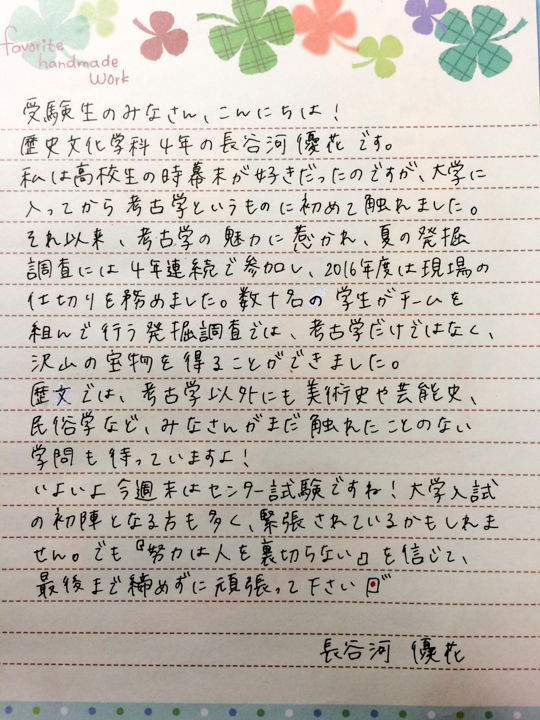 favorite
handmade
work
受験生のみなさん、こんにちは!
歴史文化学科4年の長谷河優花です。
私は高校生の時幕末が好きだったのですが、大学に
入ってから考古学というものに初めて触れました。
それ以来、考古学の魅力に惹かれ、夏の発掘
調査には4年連続で参加し、2016年度は現場の
仕切りを務めました。数十名の学生がチームを
組んで行う発掘調査では、考古学だけではなく、
沢山の宝物を得ることができました。
歴文では、考古学以外にも美術史や芸能史、
民俗学など、みなさんがまだ触れたことのない
学問も待っていますよ!
いよいよ今週末はセンター試験ですね!大学入試
の初陣となる方も多く、緊張されているかもしれま
せん。でも『努力は人を裏切らない』を信じて、
最後まで締めずに頑張って下さい
長谷河 優花